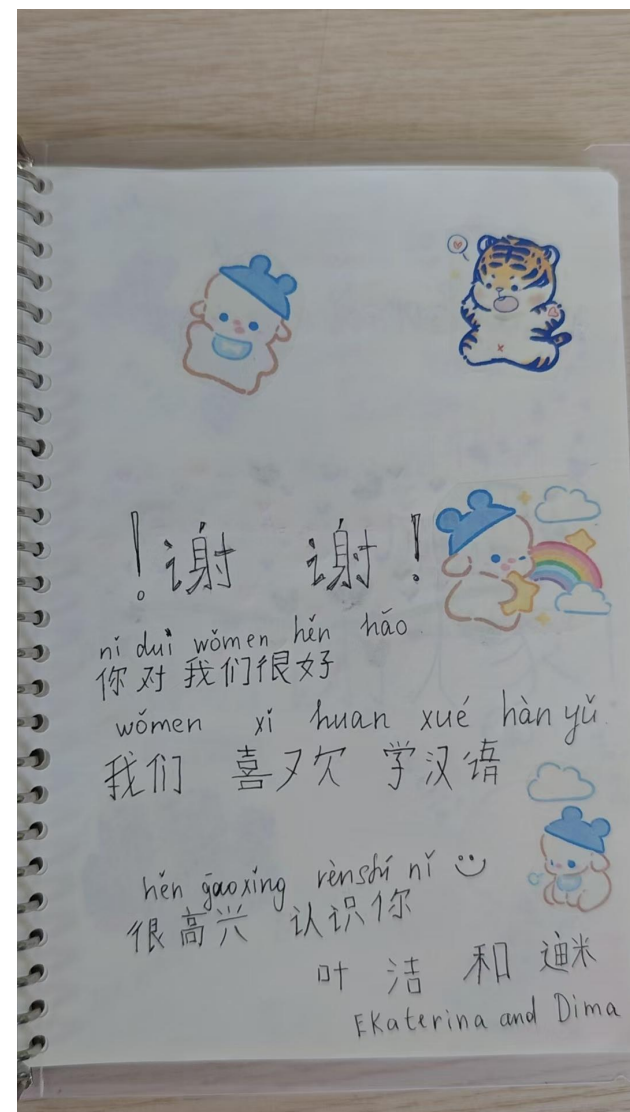 !谢 谢!
nǐ duì wǒmen hěn hǎo.
你对我们很好
wǒmen xǐ huan xué hàn yǔ.
我们 喜欢 学汉语
hěn gāoxìng rènshi nǐ
很高兴 认识你
叶 洁 和 迪米
Ekaterina and Dima